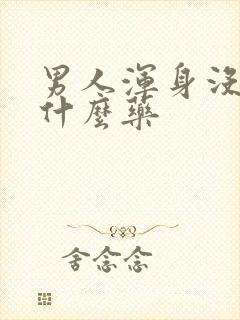 男人渾身没
什麼藥
舍念念